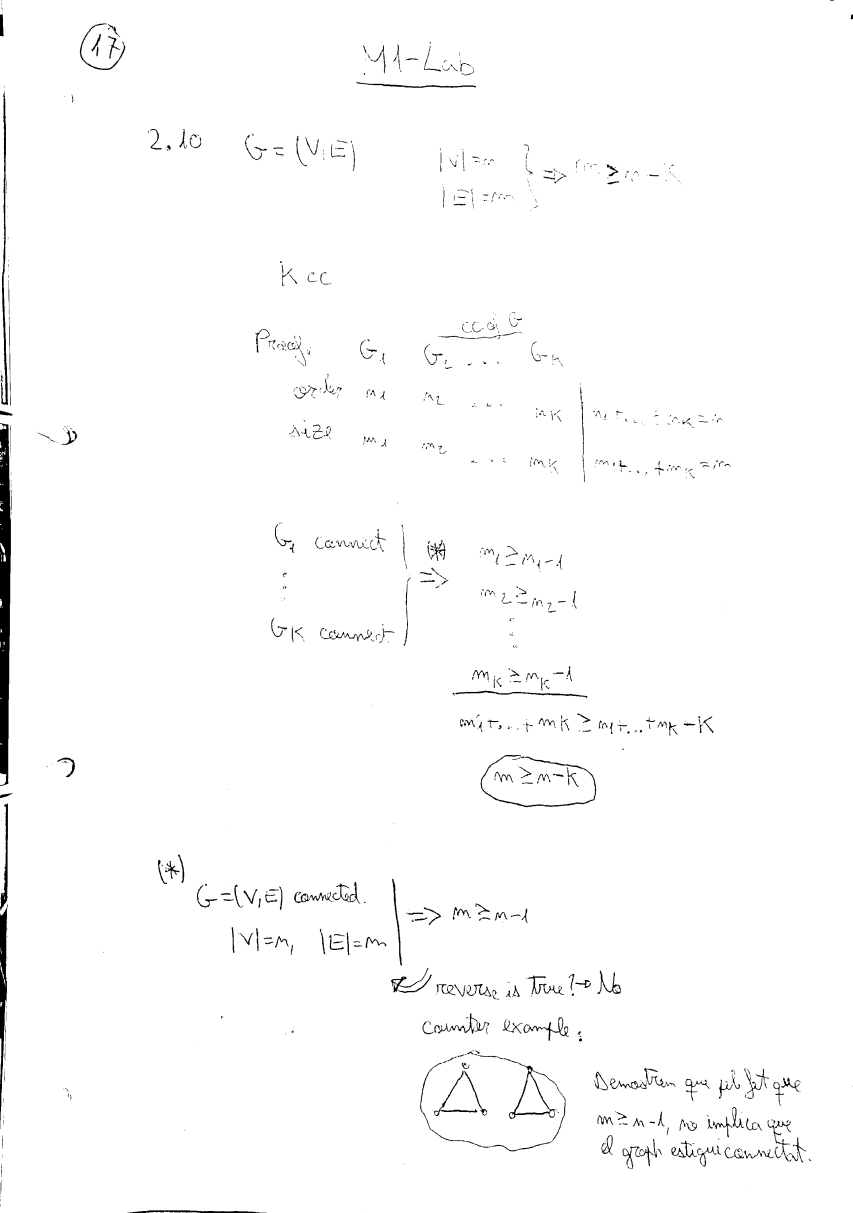 17
M1-Lab
2.10 G = (V,E) |V|=n } => m ≥ n-K
|E|=m
K cc
cc of G
Proof. G1 G2 ... GK
order n1 n2 ... nK | n1+...+nK=n
size m1 m2 ... mK | m1+...+mK=m
G1 connect (*) m1≥n1-1
⋮ => m2≥n2-1
GK connect. ⋮
mK≥nK-1
m1+...+mK ≥ n1+...+nK-K
m≥n-K
(*)
G=(V,E) connected. => m≥n-1
|V|=n, |E|=m
reverse is true?→ No
counter example:
Demostren que pel fet que
m≥n-1, no implica que
el graph estigui connectat.